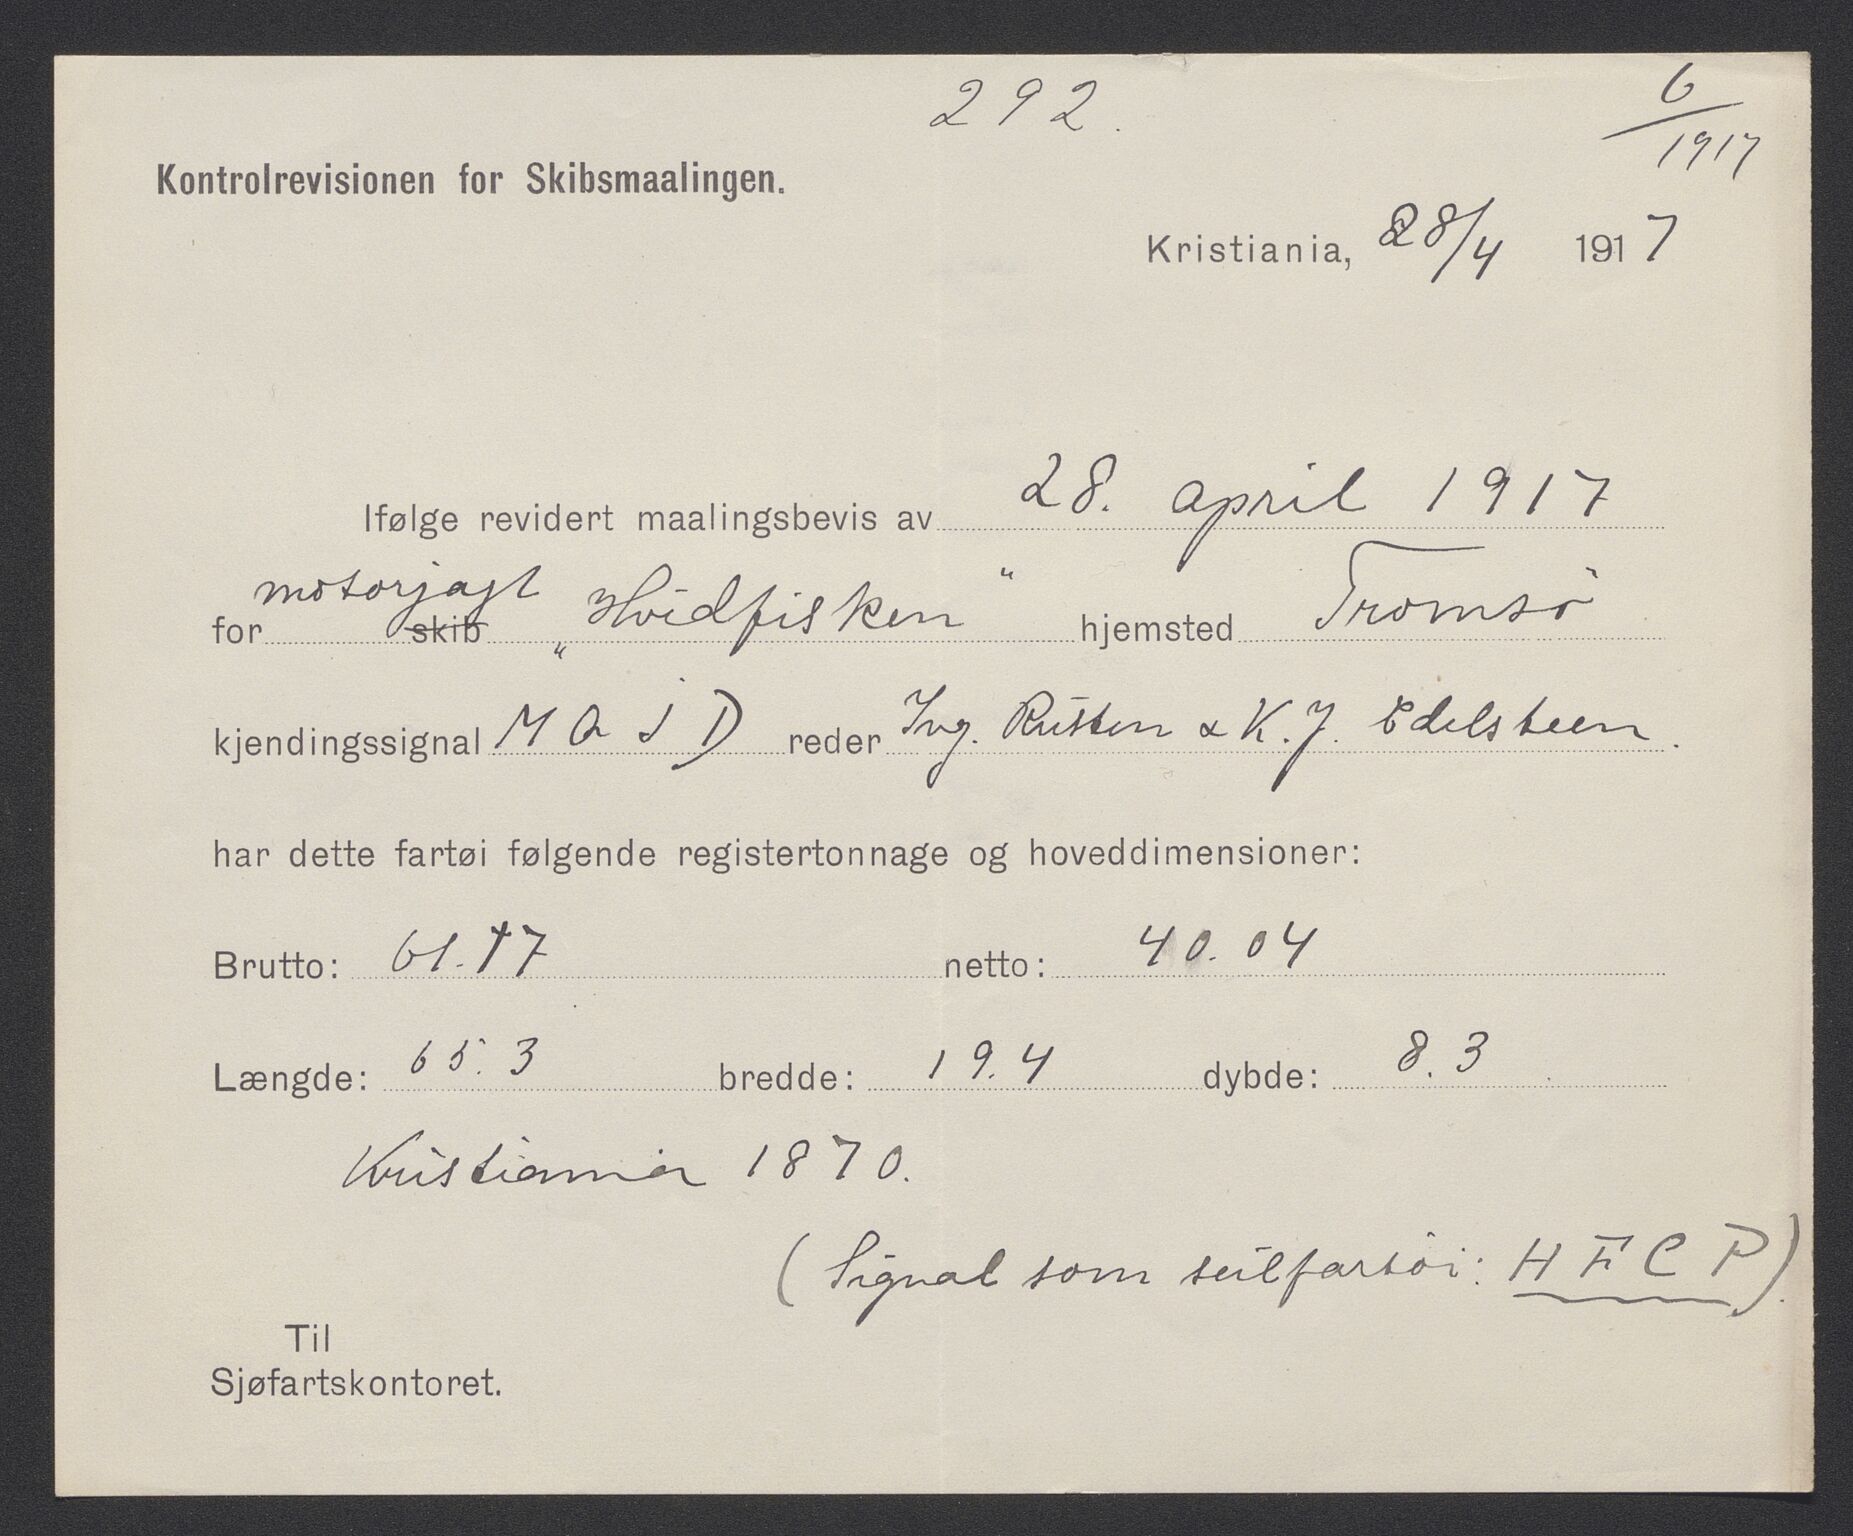 292.
6/1917
Kontrolrevisionen for Skibsmaalingen.
Kristiania, 28/4 1917
Ifølge revidert maalingsbevis av 28. april 1917
motorjagt
for skib „Hvidfisken“ hjemsted Tromsö
kjendingssignal reder Ing. Rusten & K. J. Edelsteen.
har dette fartøi følgende registertonnage og hoveddimensioner:
Brutto: 61.17 netto: 40.04
Længde: 65.3 bredde: 19.4 dybde: 8.3
Kristiania 1870.
(Signal som seilfartöi: H F C P).
Til
Sjøfartskontoret.